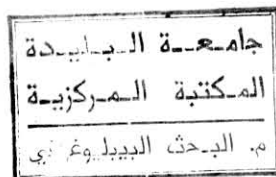 جامعة البليدة
المكتبة المركزية
م. البحث الببليوغرافي